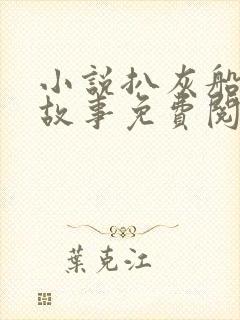 小說扒灰船
故事免費閱
葉克江